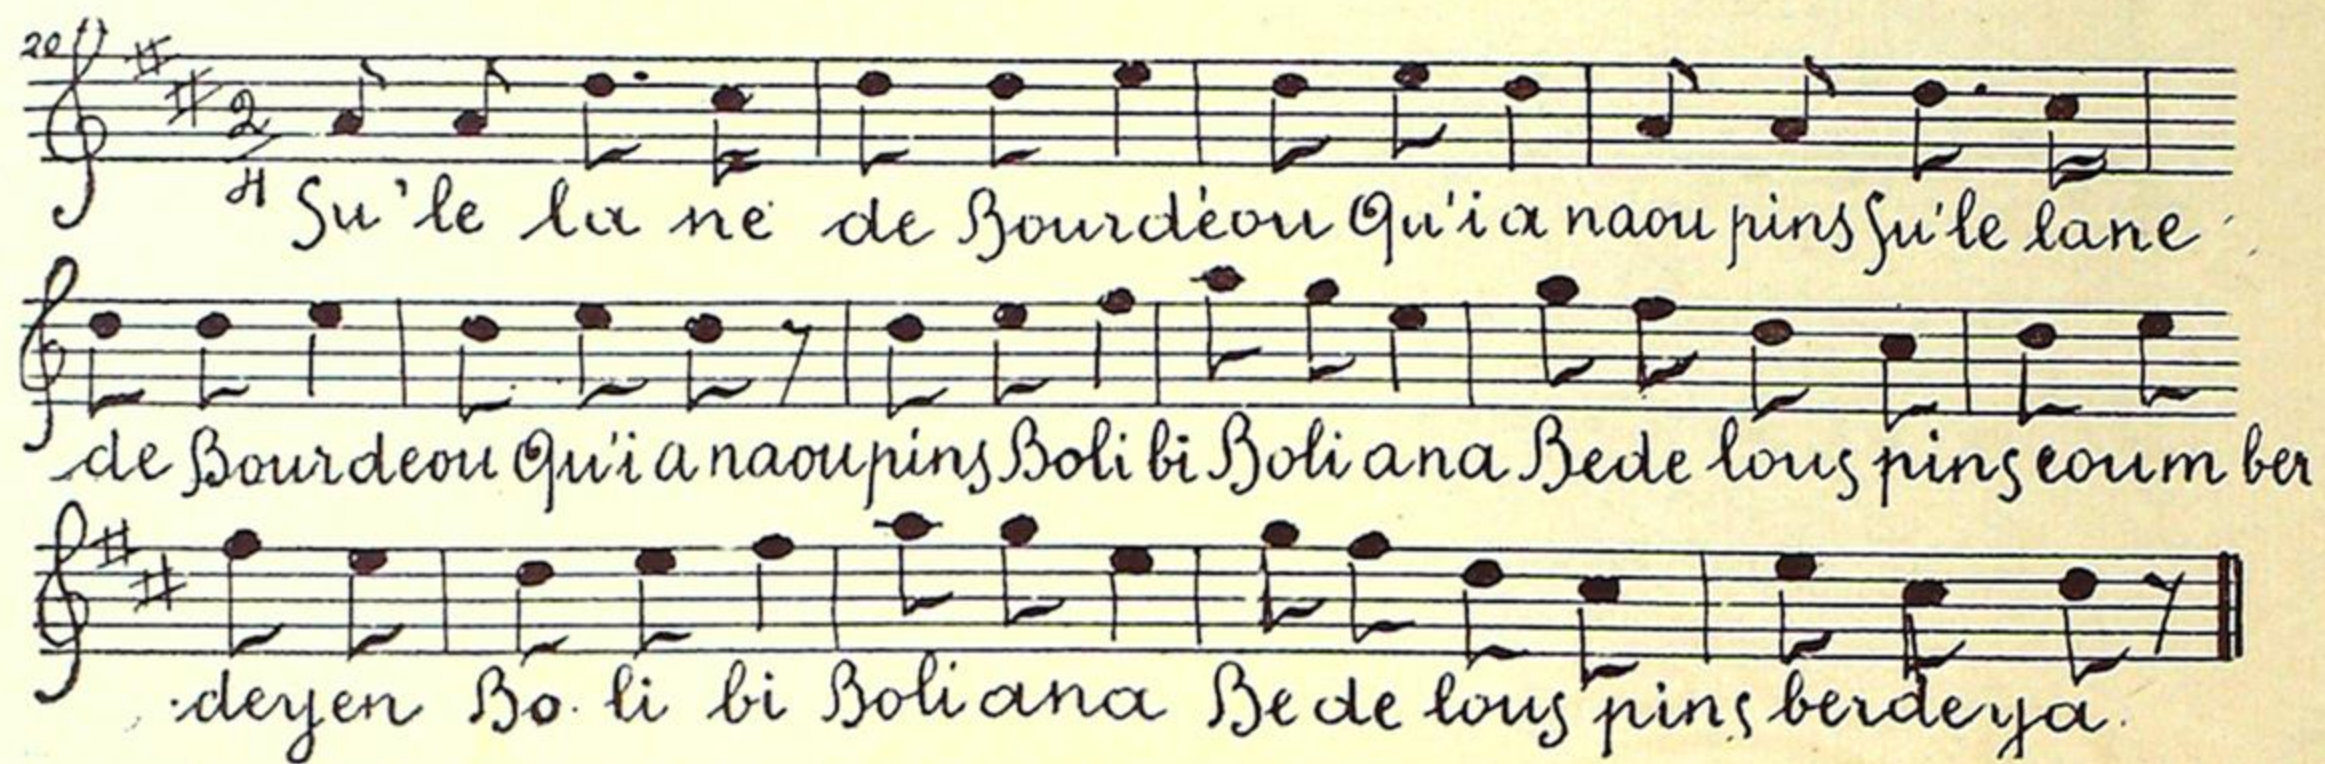 20
2
4
Su'le la ne de Bourdèou Qu'i a naou pins Su'le lane
de Bourdeou Qu'i a naou pins Boli bi Boli ana Bede lous pins coum ber
deyen Bo. li bi Boli ana Be de lous pins berdeya.